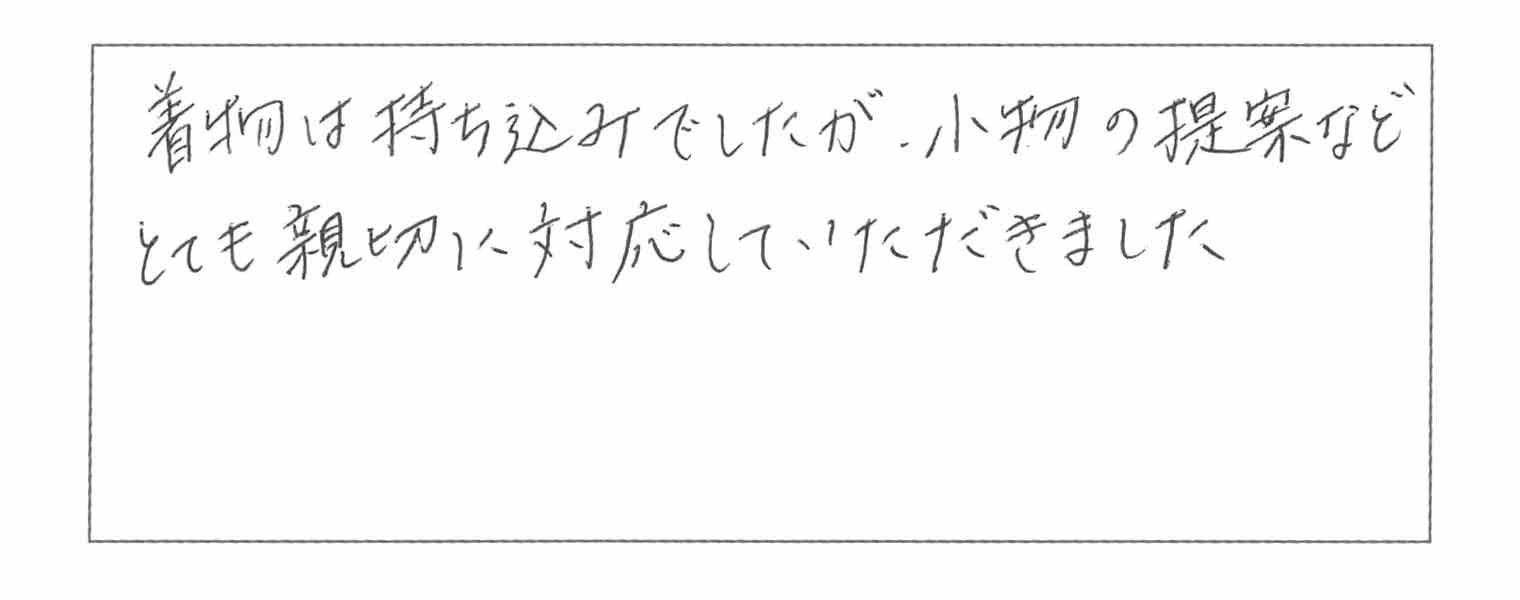 着物は持ち込みでしたが、小物の提案など
とても親切に対応していただきました